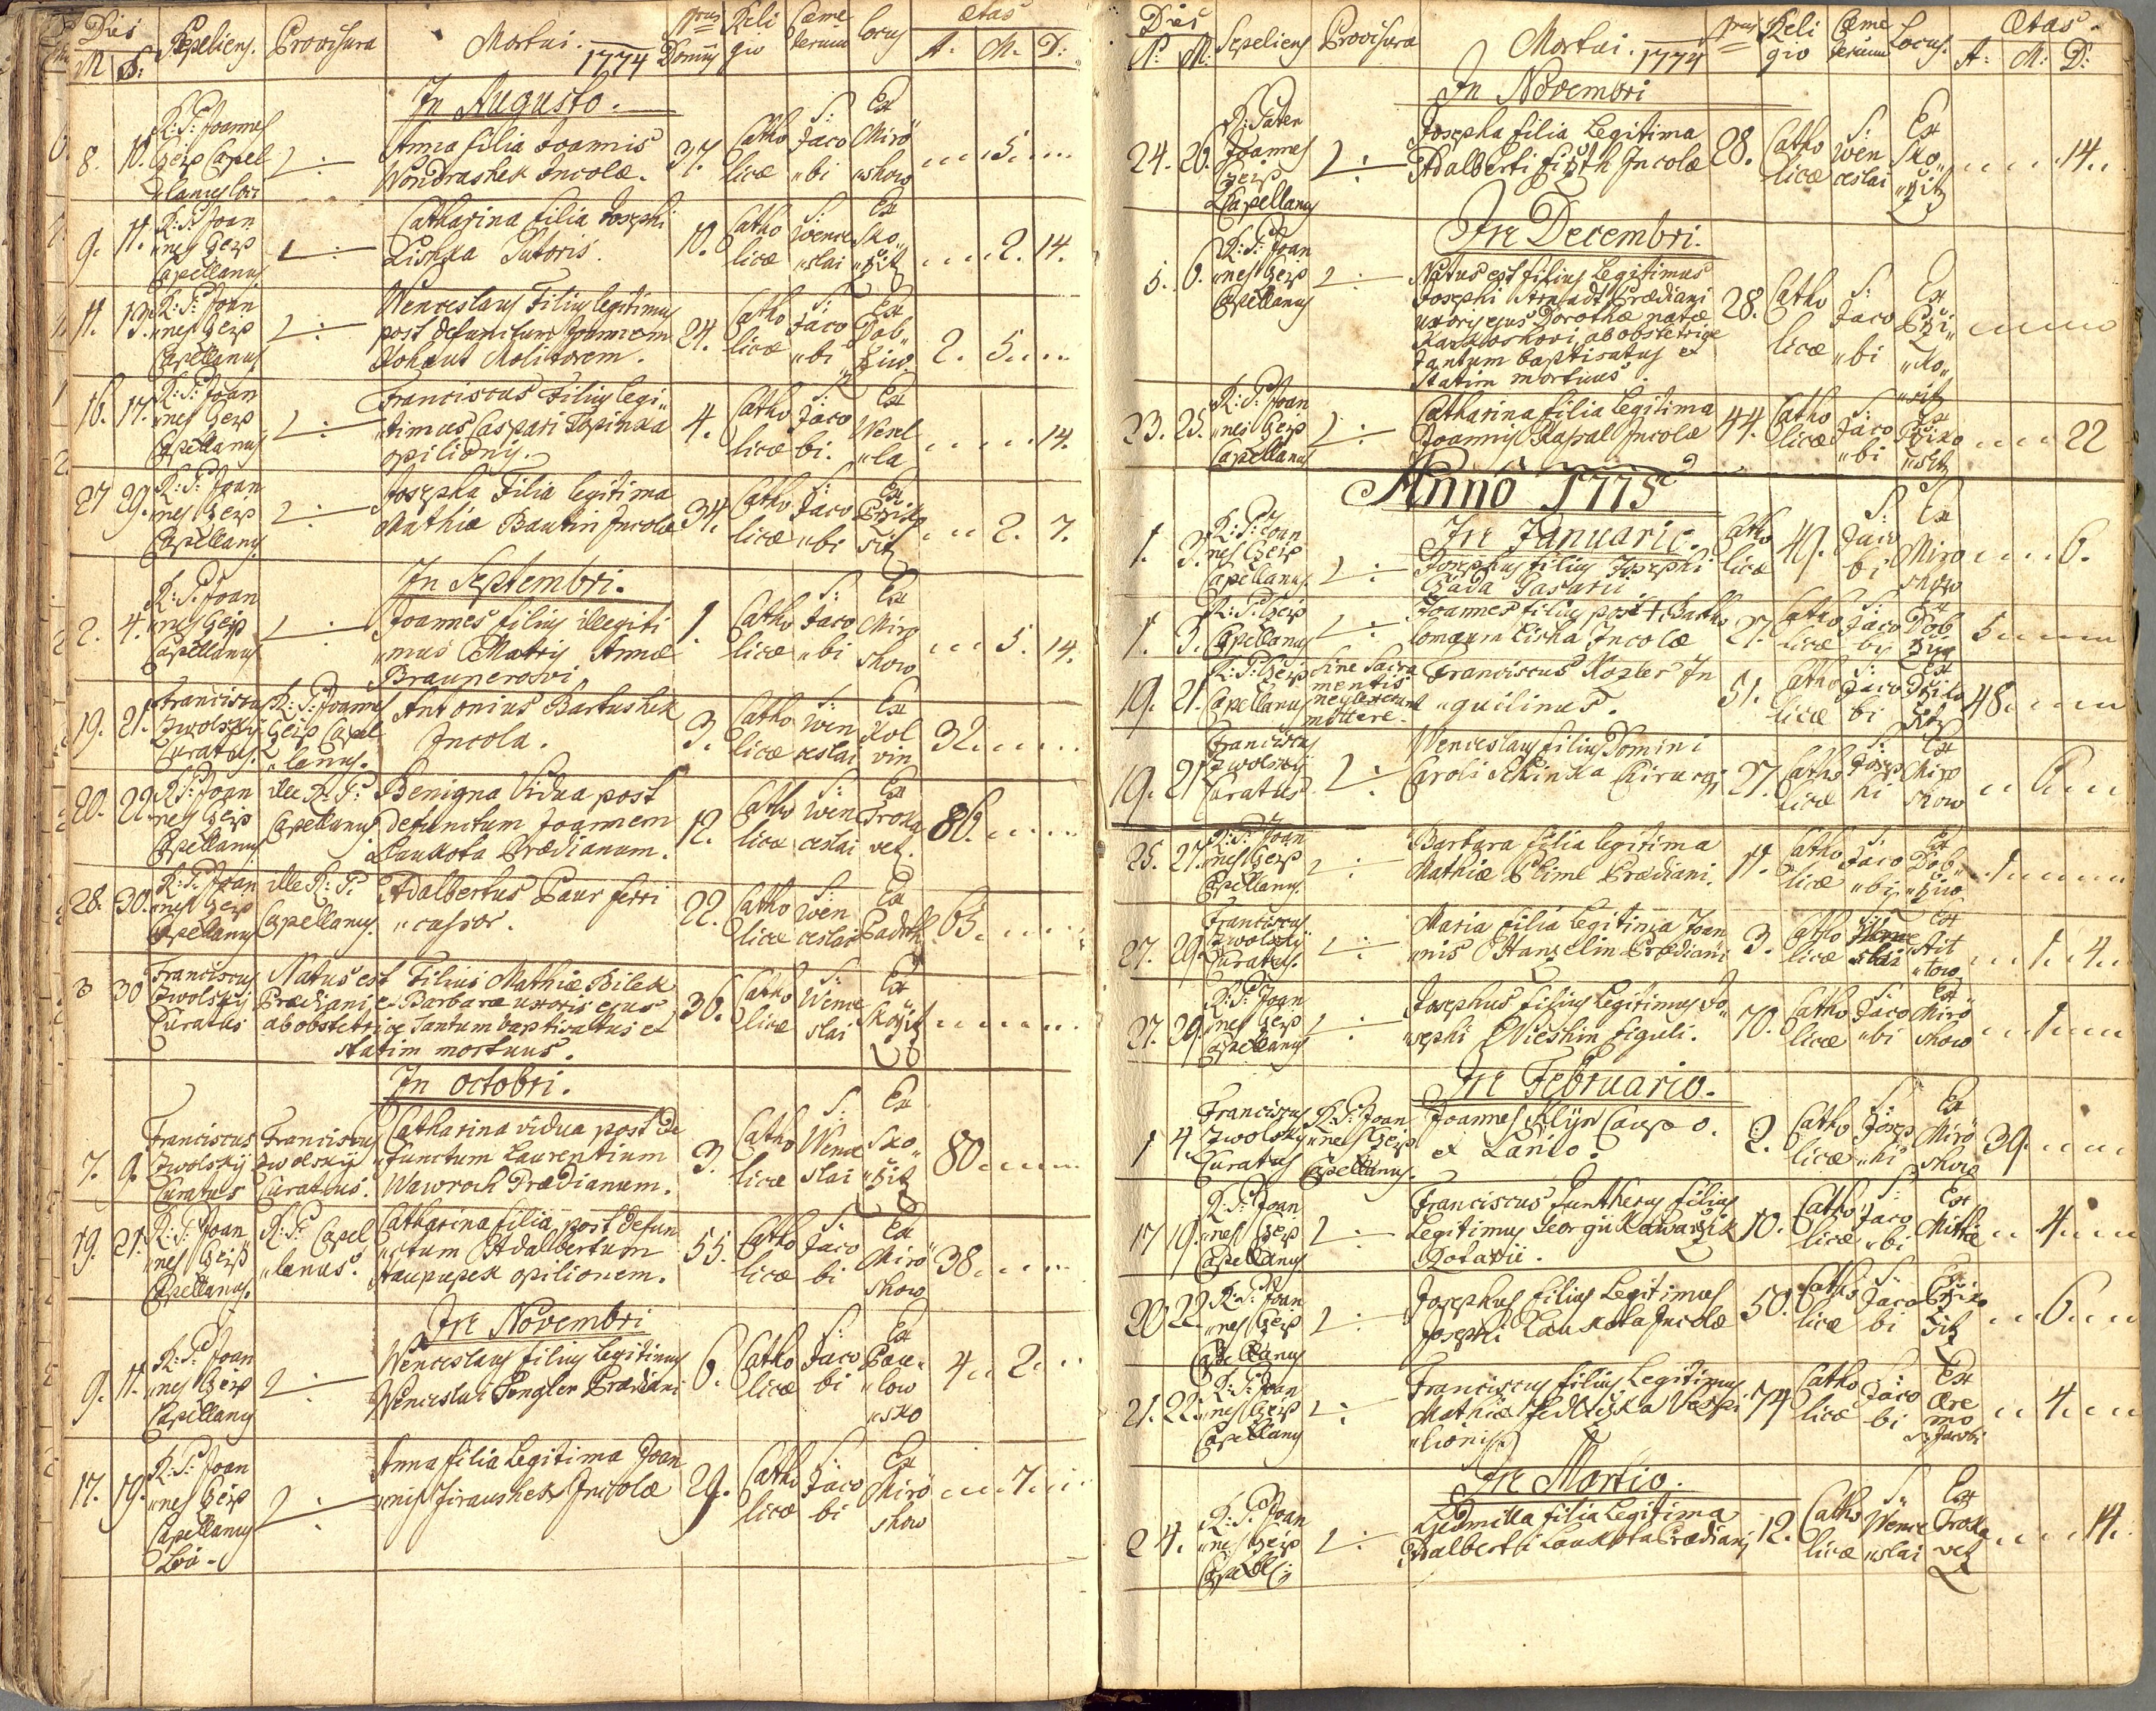 Dies Sepeliens. Provisura Mortui. 1774 Nrus Domus Religio Cæmeterium Locus Ætas
M S: A. M. D:
In Augusto.
8. 10. R: P: Joannes Geiß Capellanus Loci Anna filia Joannis Wondrashek Incolæ. 37. Catholicæ S: Jacobi Ex Miroshow 5.
9. 11. R: P: Joannes Geiß Capellanus Catharina filia Josephi Lishka Sutoris. 10. Catholicæ S: Wenceslai Ex Skořitz 2. 14.
11. 13. R: P: Joannes Geiß Capellanus Wenceslaus Filius legitimus post defunctum Joannem Kohaut Molitorem. 24. Catholicæ S: Jacobi Ex Dobřiw 2. 5.
16. 17. R: P: Joannes Geiß Capellanus Franciscus Filius legitimus Caspari Topinka opilionis. 4. Catholicæ S: Jacobi. Ex Wesella 14.
27 29. R: P: Joannes Geiß Capellanus Josepha Filia legitima Mathiæ Bautin Incolæ 34. Catholicæ S: Jacobi Ex Přikositz 2. 7.
In Septembri.
2. 4. R: P: Joannes Geiß Capellanus Joannes filius illegitimus Matris Annæ Braunerovi 1. Catholicæ S: Jacobi Ex Miroshow 5. 14.
19. 21. Franciscus Zwolský Curatus. R: P: Joannes Geiß Capellanus. Antonius Bartushek Incola. 3. Catholicæ S: Wenceslai Ex Kolvin 32.
20. 22. R: P: Joannes Geiß Capellanus ille R: P: Capellanus. Benigna Vidua post defunctum Joannem Laukota Prædianum. 12. Catholicæ S: Wenceslai Ex Trokavetz. 86.
28. 30. R: P: Joannes Geiß Capellanus ille R: P: Capellanus. Adalbertus Baur ferricussor. 22. Catholicæ S: Wenceslai Ex Padrth 65.
30 Franciscus Zwolský Curatus Natus est Filius Mathiæ Bilek Prædiani et Barbaræ uxoris ejus ab obstetrice Tantum baptisatus et statim mortuus. 36. Catholicæ S: Wenceslai Ex Skořitz
In Octobri.
7. 9. Franciscus Zwolský Curatus Franciscus Zwolský Curatus. Catharina vidua post defunctum Laurentium Wawroch Prædianum. 3. Catholicæ S: Wenceslai Ex Skořitz 80.
19. 21. R: P: Joannes Geiß Capellanus. R: P: Capellanus. Catharina filia post defunctum Adalbertum Staupupek opilionem. 55. Catholicæ S: Jacobi Ex Miroshow 38.
In Novembri
9. 11. R: P: Joannes Geiß Capellanus Wenceslaus filius Legitimus Wenceslai Pengler Prædiani 6. Catholicæ S: Jacobi Ex Pawlowsko 4. 2.
17. 19. R: P: Joannes Geiß Capellanus Loci. Anna filia Legitima Joannis Jiraushek Incolæ 29. Catholicæ S: Jacobi Ex Miroshow 7.
Dies Sepeliens Provisura Mortui. 1774 Nrus Religio Cæmeterium Locus. Ætas.
M: A: M: D:
In Novembri
24. 26. R: Pater Joannes Geiß Capellanus Josepha filia Legitima Adalberti Incolæ 28. Catholicæ S: Wenceslai Ex Skořitz 14.
In Decembri.
5. 6. R: P: Joannes Geiß Capellanus Natus est filius Legitimus Josephi Prædiani uxoris ejus Dorothæ natæ ab obstetrice Tantum baptisatus et statim mortuus. 28. Catholicæ S: Jacobi Ex Přikositz
23. 25. R: P: Joannes Geiß Capellanus Catharina filia Legitima Joannis Kasral Incolæ 44. Catholicæ S: Jacobi Ex Přikositz 22
Anno 1775
In Januario.
1. 3. R: P: Joannes Geiß Capellanus Josephus filius Josephi Čada Casarii Catholicæ 49. S: Jacobi Ex Miroshow 6.
1. 3. R: P: Geiß Capellanus Joannes filius post † Bartholomæum Lishka Incolæ 27. Catholicæ S: Jacobi Ex Dobřiw 5
19. 21. R: P: Geiß Capellanus Sine Sacramentis neglexerunt mittere. Franciscus Kozler Inquilinus. 51. Catholicæ S: Jacobi Ex Přikositz 48.
19. 21 Franciscus Zwolský Curatus Wenceslaus filius Domini Caroli Schinka Chirurgi 27. Catholicæ S: Josephi Ex Miroshow 6
25. 27. R: P: Joannes Geiß Capellanus. Barbara filia legitima Mathiæ Prædiani. 11. Catholicæ S: Jacobi Ex Dobřiw 1
27. 29. Franciscus Zwolský Curatus. Maria filia Legitima Joannis Hanzelin Prædiani 3. Catholicæ S: Wenceslai Ex Stitow 1. 4.
27. 29. R: P: Joannes Geiß Capellanus Josephus filius Legitimus Josephi Wieshin figuli. 70. Catholicæ S: Jacobi Ex Miroshow 1
In Februario.
1 4. Franciscus Zwolský Curatus R: P: Joannes Geiß Capellanus. Joannes Klyn Caupo et Lanio. 2. Catholicæ S: Josephi Ex Miroshow 39.
17 19. R: P: Joannes Geiß Capellanus Franciscus Juntherus filius Legitimus Georgii Kawarzik Rotarii. 10. Catholicæ S: Jacobi Ex Mittie 4
20 22. R: P: Joannes Geiß Capellanus Josephus filius Legitimus Josephi Laukota Incolæ 50. Catholicæ S: Jacobi Ex Přikositz 6
21. 22. R: P: Joannes Geiß Capellanus Franciscus filius Legitimus Mathiæ Jedlička Vespilionis 74 Catholicæ S: Jacobi Ex Æremo S: Jacobi 4.
In Martio.
2 4. R: P: Joannes Geiß Capell: Ludmilla filia Legitima Adalberti Laukota Prædiani 12. Catholicæ S: Wenceslai Ex Trokavetz 14.